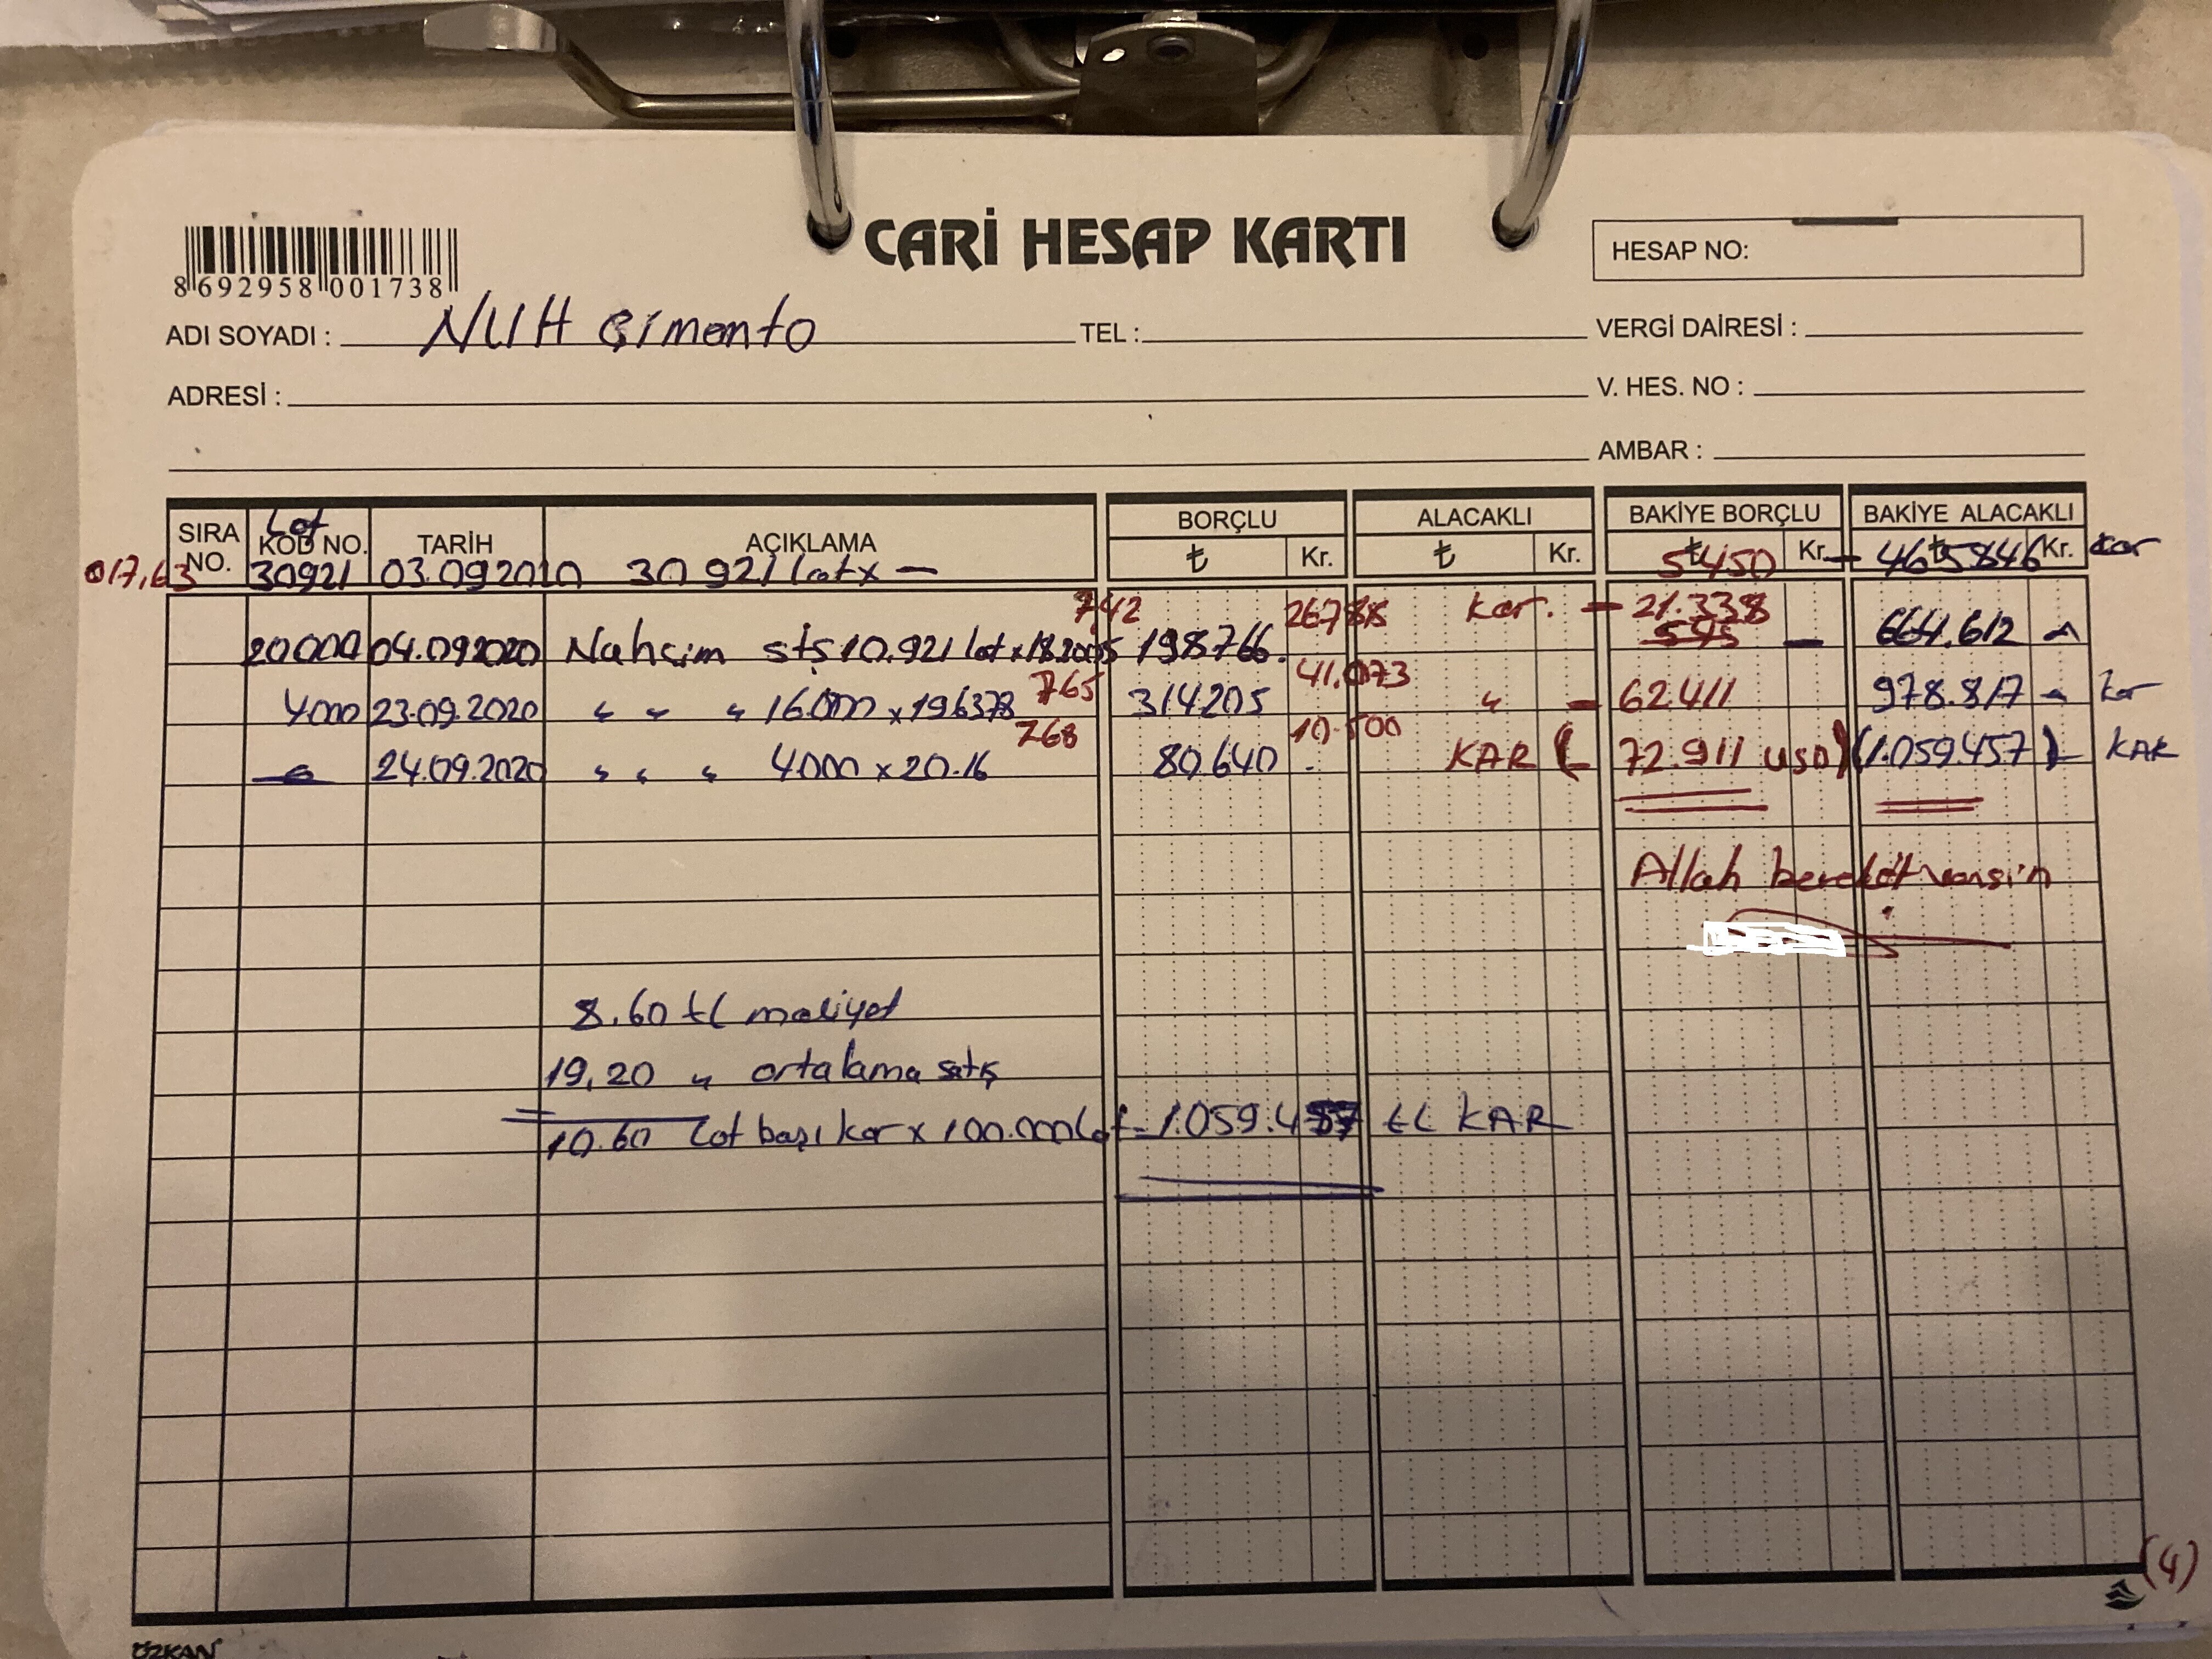 CARİ HESAP KARTI
HESAP NO:
8 692958 001738
ADI SOYADI : NUH Çimento TEL : VERGİ DAİRESİ :
ADRESİ : V. HES. NO :
AMBAR :
SIRA NO. Lot KOD NO. TARİH AÇIKLAMA BORÇLU ₺ Kr. ALACAKLI ₺ Kr. BAKİYE BORÇLU ₺ Kr. BAKİYE ALACAKLI ₺ Kr.
17,63 30921 03.09.2010 30921 lot x — 5450 — 465846 kar
742 26788 kar. — 21.338
20000 04.09.2020 Nahcim stş 10.921 lot x 18.2005 198766. 545 — 664.612
765 41.073
4000 23.09.2020 " " " 16.000 x 196378 314205 " — 62411 978.817 - kar
768 10.500
24.09.2020 " " " 4000 x 20.16 80.640 . KAR (- 72.911 USD) (1.059.457) - KAR
Allah bereket versin
8.60 tl maliyet
19,20 " ortalama satış
10.60 lot başı kar x 100.000 lot = 1.059.457 tl KAR
(4)
ÖZKAN